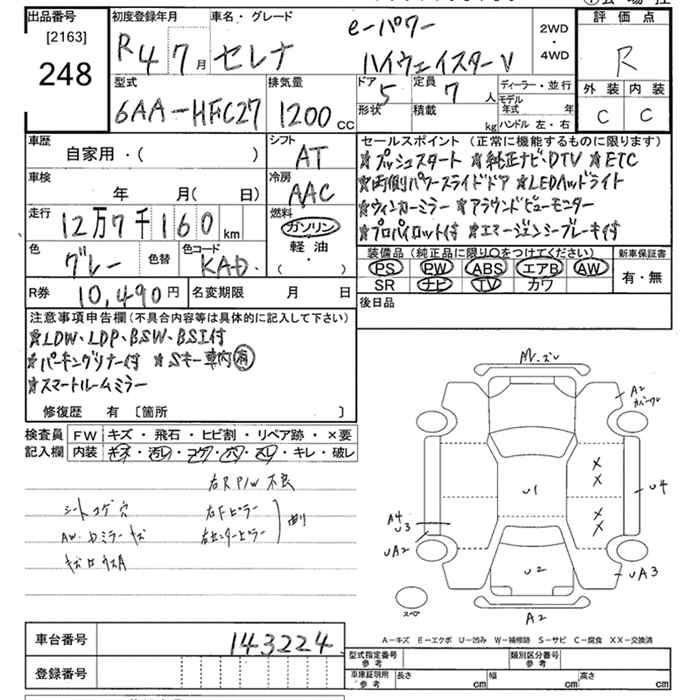 出品番号 初度登録年月 車名・グレード e-パワー 評価点
[2163] R4 7月 セレナ ハイウェイスターV 2WD・4WD R
248 型式 排気量 ドア 定員 ディーラー・並行 外装 内装
6AA-HFC27 1200 cc 5 7人 モデル年式 年 C C
形状 積載 kg ハンドル 左・右
車歴 シフト セールスポイント (正常に機能するものに限ります)
自家用・( ) AT ★プッシュスタート ★純正ナビ・DTV ★ETC
車検 冷房 ★両側パワースライドドア ★LEDヘッドライト
年 月( 日) AAC ★ウィンカーミラー ★アラウンドビューモニター
走行 燃料 ★プロパイロット付 ★エマージェンシーブレーキ付
12万7千160km ガソリン
軽油・( )
色 色替 色コード 装備品(純正品に限り○をつけてください) 新車保証書
グレー KAD. PS PW ABS エアB AW 有・無
SR ナビ TV カワ
R券 10,490円 名変期限 月 日 後日品
注意事項申告欄(不具合内容等は具体的に記入して下さい)
★LDW、LDP、BSW、BSI付
★パーキングソナー付 ★Sキー 車内 有
★スマートルームミラー
修復歴 有 〔箇所 〕
検査員記入欄 FW キズ・飛石・ヒビ割・リペア跡・×要
内装 キズ・汚レ・コゲ・穴・スレ・キレ・破レ
右R P/W 不良
シートコゲ穴 右Fピラー
AW・ドミラーキズ 右センターピラー 曲り
A2
U1
X
X
X
X
U4
A4
U3
UA2
U2
UA3
スペア
A2
A-キズ E-エクボ U-凹み W-補修跡 S-サビ C-腐食 XX-交換済
車台番号 143224
型式指定番号 参考 類別区分番号 参考
登録番号 車庫証明用 参考 長さ cm 幅 cm 高さ cm